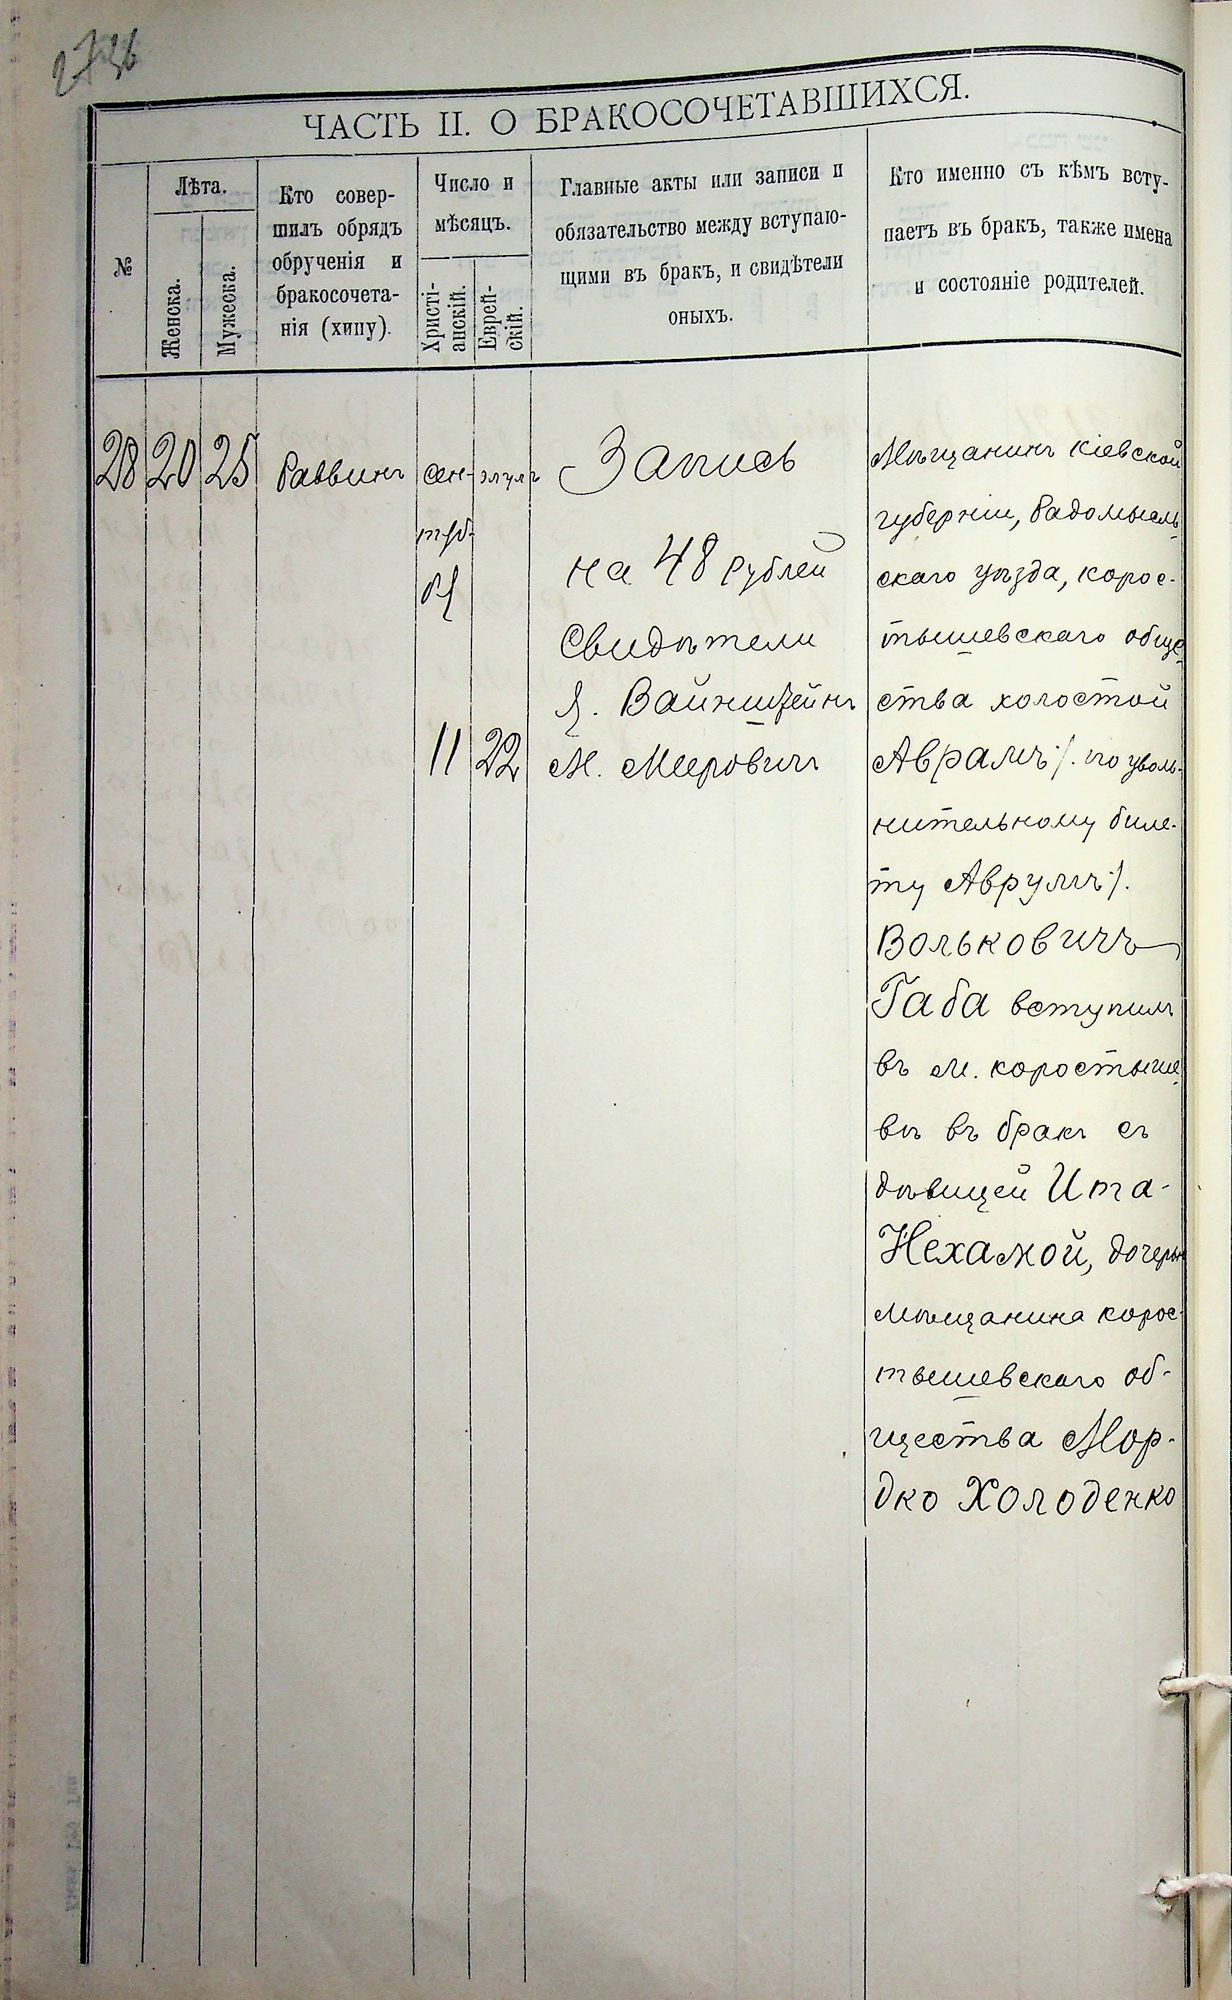 ЧАСТЬ II. О БРАКОСОЧЕТАВШИХСЯ.
№
Лѣта.
Женска.
Мужеска.
Кто совер-
шилъ обрядъ
обрученія и
бракосочета-
нія (хипу).
Число и
мѣсяцъ.
Христі-
анскій.
Еврей-
скій.
Главные акты или записи и
обязательство между вступаю-
щими въ бракъ, и свидѣтели
оныхъ.
Кто именно съ кѣмъ всту-
паетъ въ бракъ, также имена
и состояніе родителей.
28
20
25
Раввинъ
Сен-
тяб-
ря
11
элулъ
22
Запись
на 48 рублей
Свидѣтели
Вайнштейнъ
М. Мееровичъ
Мѣщанинъ Кіевской
губерніи, Радомысль
скаго уѣзда, корос-
тышевскаго обще
ства холостой
Аврамъ /. по уволь-
нительному биле-
ту Аврумъ /.
Вольковичъ
Габа вступилъ
въ м. коростыше
вѣ въ бракъ съ
дѣвицей Ита-
Нехамой, дочерью
мѣщанина корос-
тышевскаго об-
щества Мор-
дко Холоденко